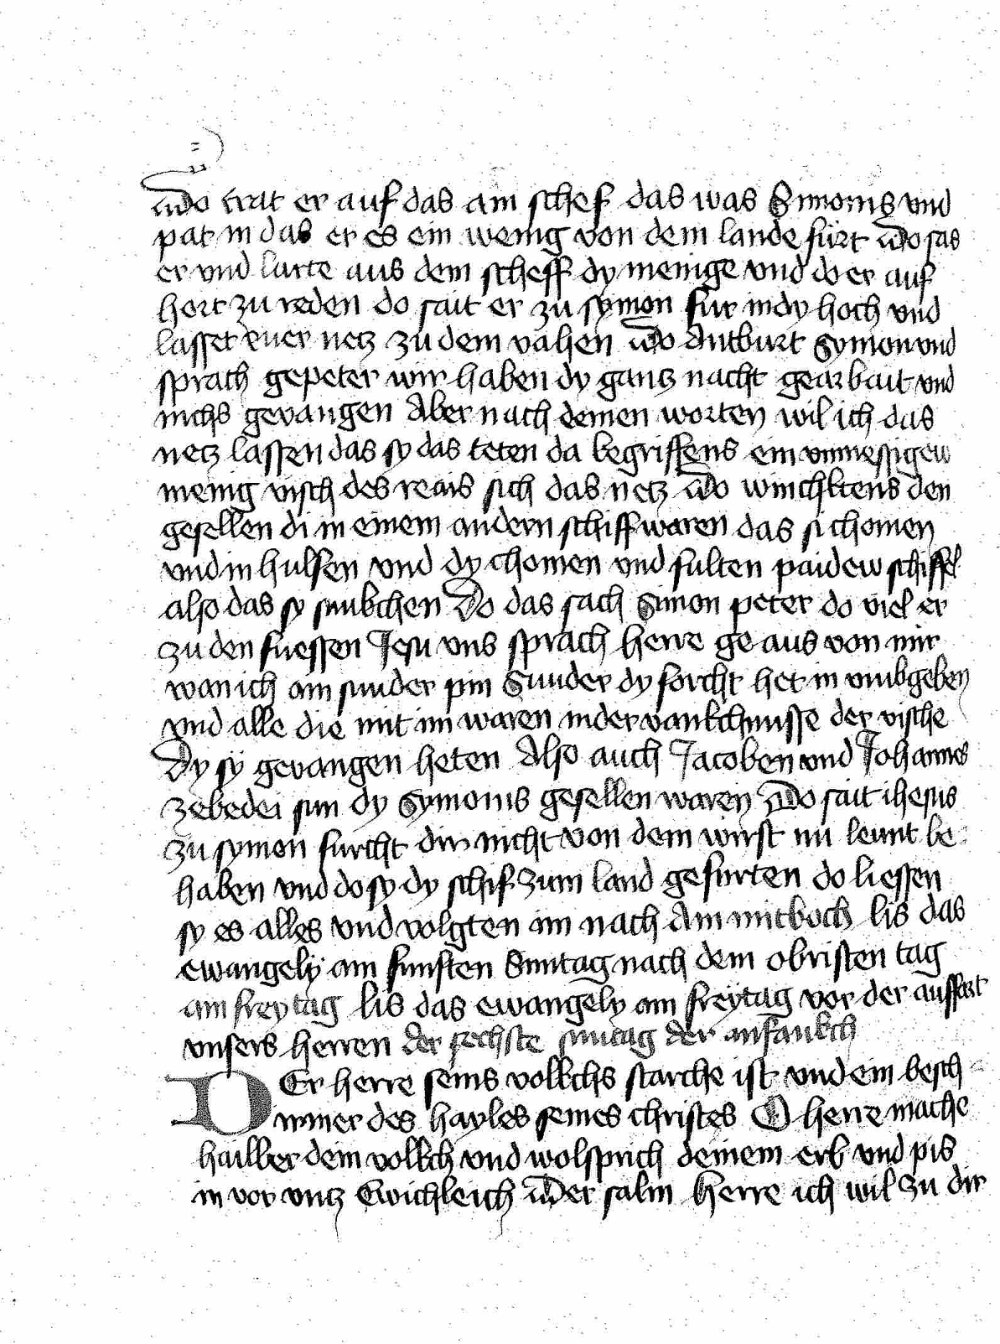 Do trat er auf das ain schef das was Simonis vnd
pat in das er es ein wenig von dem lande fürt Do sas
er vnd larte aus dem scheff dy menige vnd do er auf
hort zu reden do sait er zu symon für in dy hoch vnd
lasset ewer netz zu dem vahen Do Antburt Symon vnd
sprach gepeter wir haben dy gantz nacht gearbait vnd
nichs gevangen Aber nach deinen worten wil ich das
netz lassen das sy das teten da begriffens ein vnmessigew
menig visch des reais sich das netz Do winchktens den
gesellen di in einem andern schiff waren das si chomen
vnd in hulfen vnd dy chomen vnd fulten paidew schiffel
also das sy sunkchen Do das sach Simon peter do viel er
zu den fuessen Jesu vns sprach herre ge aus von mir
wan ich ain sunder pin Sunder dy forcht het in vmbgeben
vnd alle die mit im waren in der vankchnusse der vische
Dy sy gevangen heten Also auch Jacoben vnd Johannes
zebedei sun dy Symonis gesellen waren Do sait ihesus
zu symon furcht dir nicht von dem wirst nu leunt be
haben vnd do sy dy schif zum land gefurten do liessen
sy es alles vnd volgten im nach Am mitboch lis das
ewangely am funften Suntag nach dem obristen tag
am freytag lis das ewangely am freytag vor der auffart
vnsers herren der sechste suntag der anfankch
DEr herre seins volkchs starche ist vnd ein besch
irmer des hayles seines christes O herre mache
hailber dein volkch vnd wolsprich deinem erb vnd pis
in vor vntz Ewichleich Der salm Herre ich wil zu dir